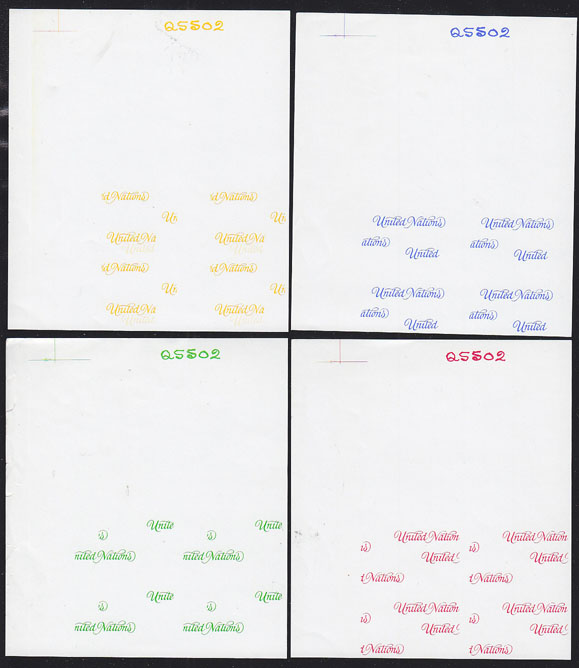 Q5502
d Nations
d Nations
Un
Un
United Na
United Na
United
United
d Nations
d Nations
Un
Un
United Na
United Na
United
United
Q5502
United Nations
United Nations
ations
ations
United
United
United Nations
United Nations
ations
ations
United
United
Q5502
Unite
Unite
s
s
nited Nations
nited Nations
Unite
Unite
s
s
nited Nations
nited Nations
Q5502
United Nation
United Nation
s
s
United
United
t Nations
t Nations
United Nation
United Nation
s
s
United
United
t Nations
t Nations